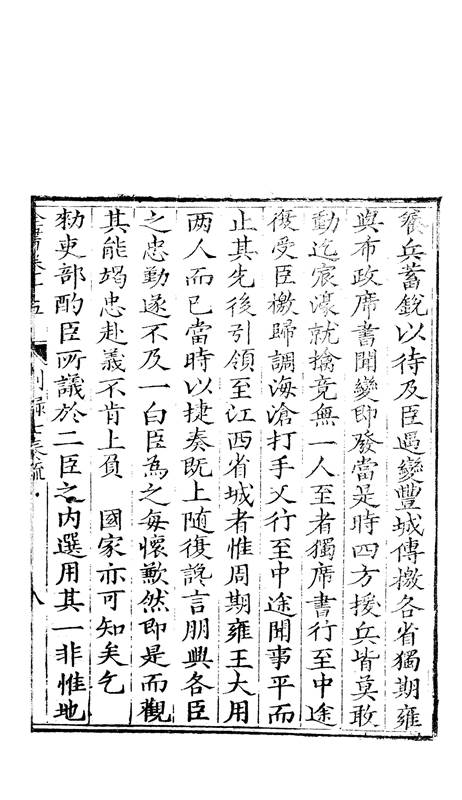 餱兵蓄銳以待及臣遇變豐城傳檄各省獨期雍
與布政席書聞變即發當是時四方援兵皆莫敢
動迄宸濠就擒竟無一人至者獨席書行至中途
復受臣檄歸調海滄打手又行至中途聞事平而
止其先後引領至江西省城者惟周期雍王大用
两人而已當時以捷奏既上隨復讒言朋興各臣
之忠勤遂不及一白臣為之每懷歉然即是而觀
其能竭忠赴義不肯上負　國家亦可知矣乞
勑吏部酌臣所議於二臣之内選用其一非惟地
全書卷十五　别錄七奏疏　八